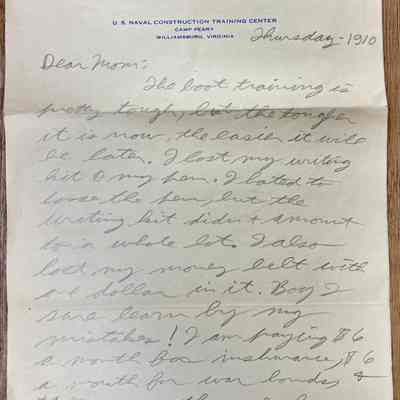 U. S. NAVAL CONSTRUCTION TRAINING CENTER
CAMP PEARY
WILLIAMSBURG, VIRGINIA
Thursday - 1910
Dear Mom:
The boot training is
pretty tough, but the tougher
it is now, the easier it will
be later. I lost my writing
kit & my pen. I hated to
loose the pen, but the
writing kit didn't amount
to a whole lot. I also
lost my money belt with
one dollar in it. Boy I
sure learn by my
mistakes! I am paying $6
a month for insurance, $6
a month for war bonds, &